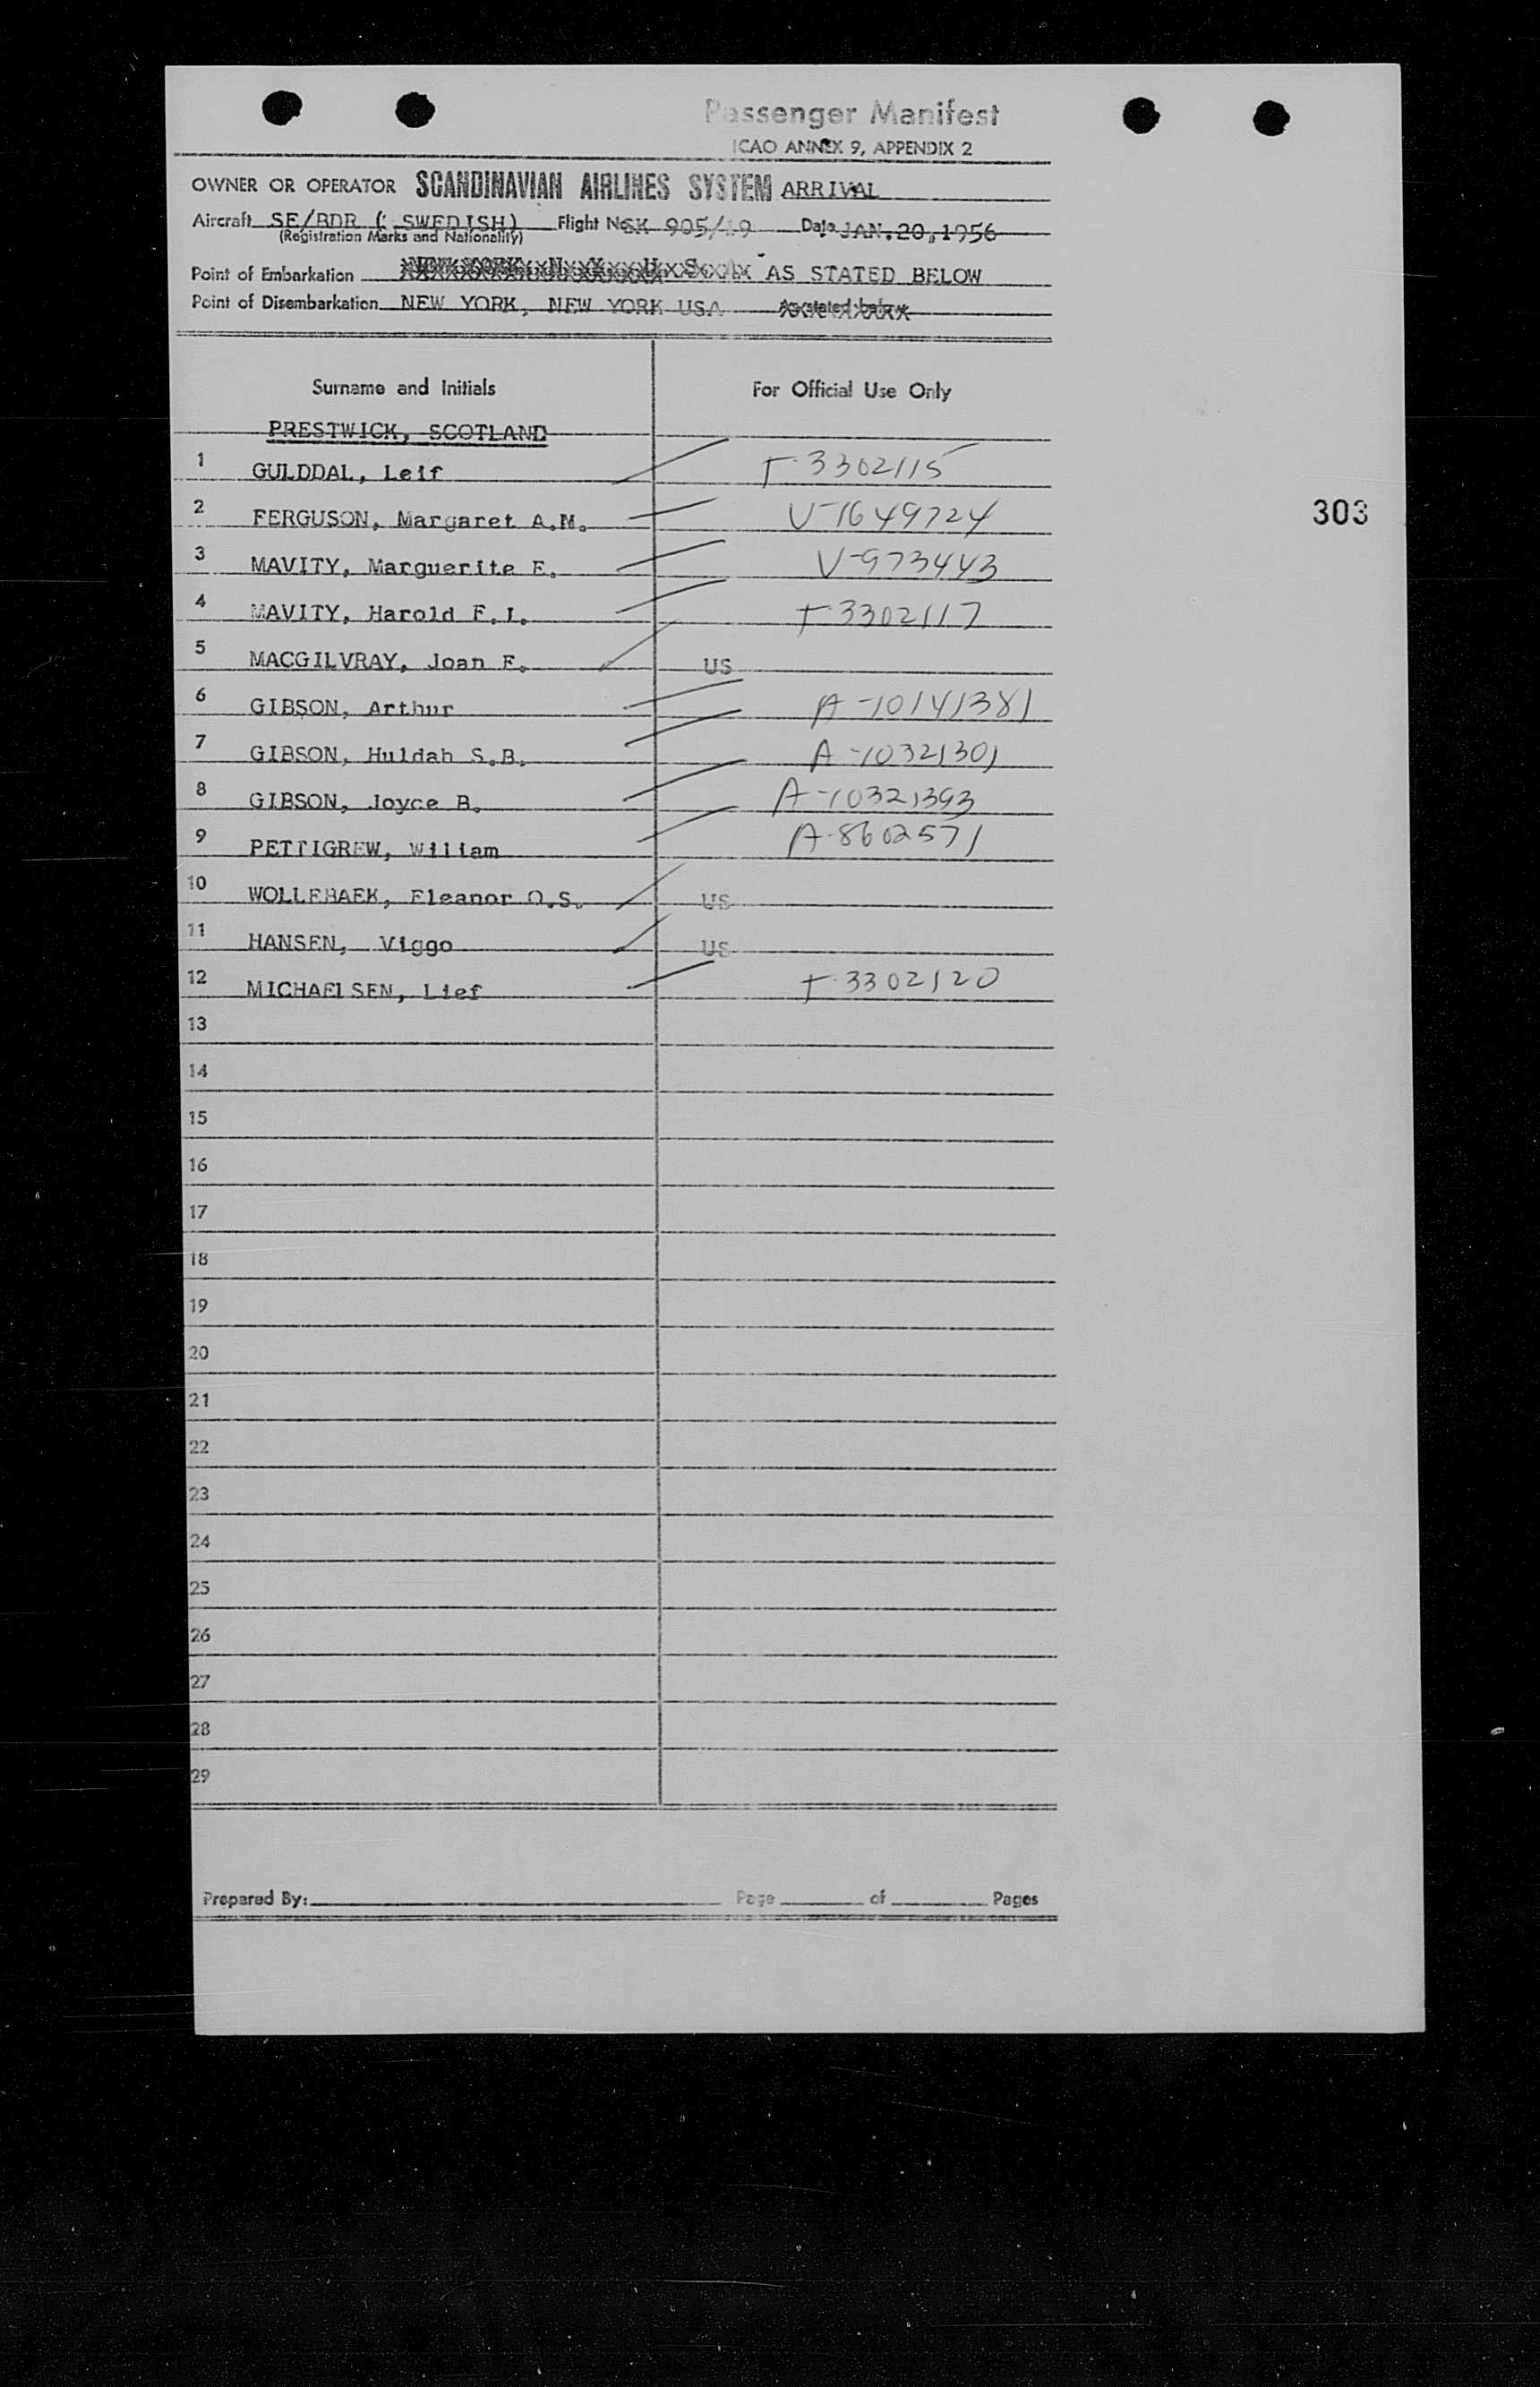 Passenger Manifest
ICAO ANNEX 9, APPENDIX 2
OWNER OR OPERATOR SCANDINAVIAN AIRLINES SYSTEM ARRIVAL
Aircraft SE/BDR ( SWEDISH) Flight No SK 905/19 Date JAN.20,1956
(Registration Marks and Nationality)
Point of Embarkation AS STATED BELOW
Point of Disembarkation NEW YORK, NEW YORK USA As stated below
Surname and Initials For Official Use Only
PRESTWICK, SCOTLAND
1 GULDDAL, Leif T-3302115
2 FERGUSON, Margaret A.M. V-1649724
303
3 MAVITY, Marguerite E. V-973443
4 MAVITY, Harold F.I. T-3302117
5 MACGILVRAY, Joan E. US
6 GIBSON, Arthur A-10141381
7 GIBSON, Huldah S.B. A-10321301
8 GIBSON, Joyce B. A-10321393
9 PETTIGREW, William A-8602571
10 WOLLEBAEK, Eleanor O.S. US
11 HANSEN, Viggo US
12 MICHAELSEN, Lief T-3302120
13
14
15
16
17
18
19
20
21
22
23
24
25
26
27
28
29
Prepared By: Page of Pages